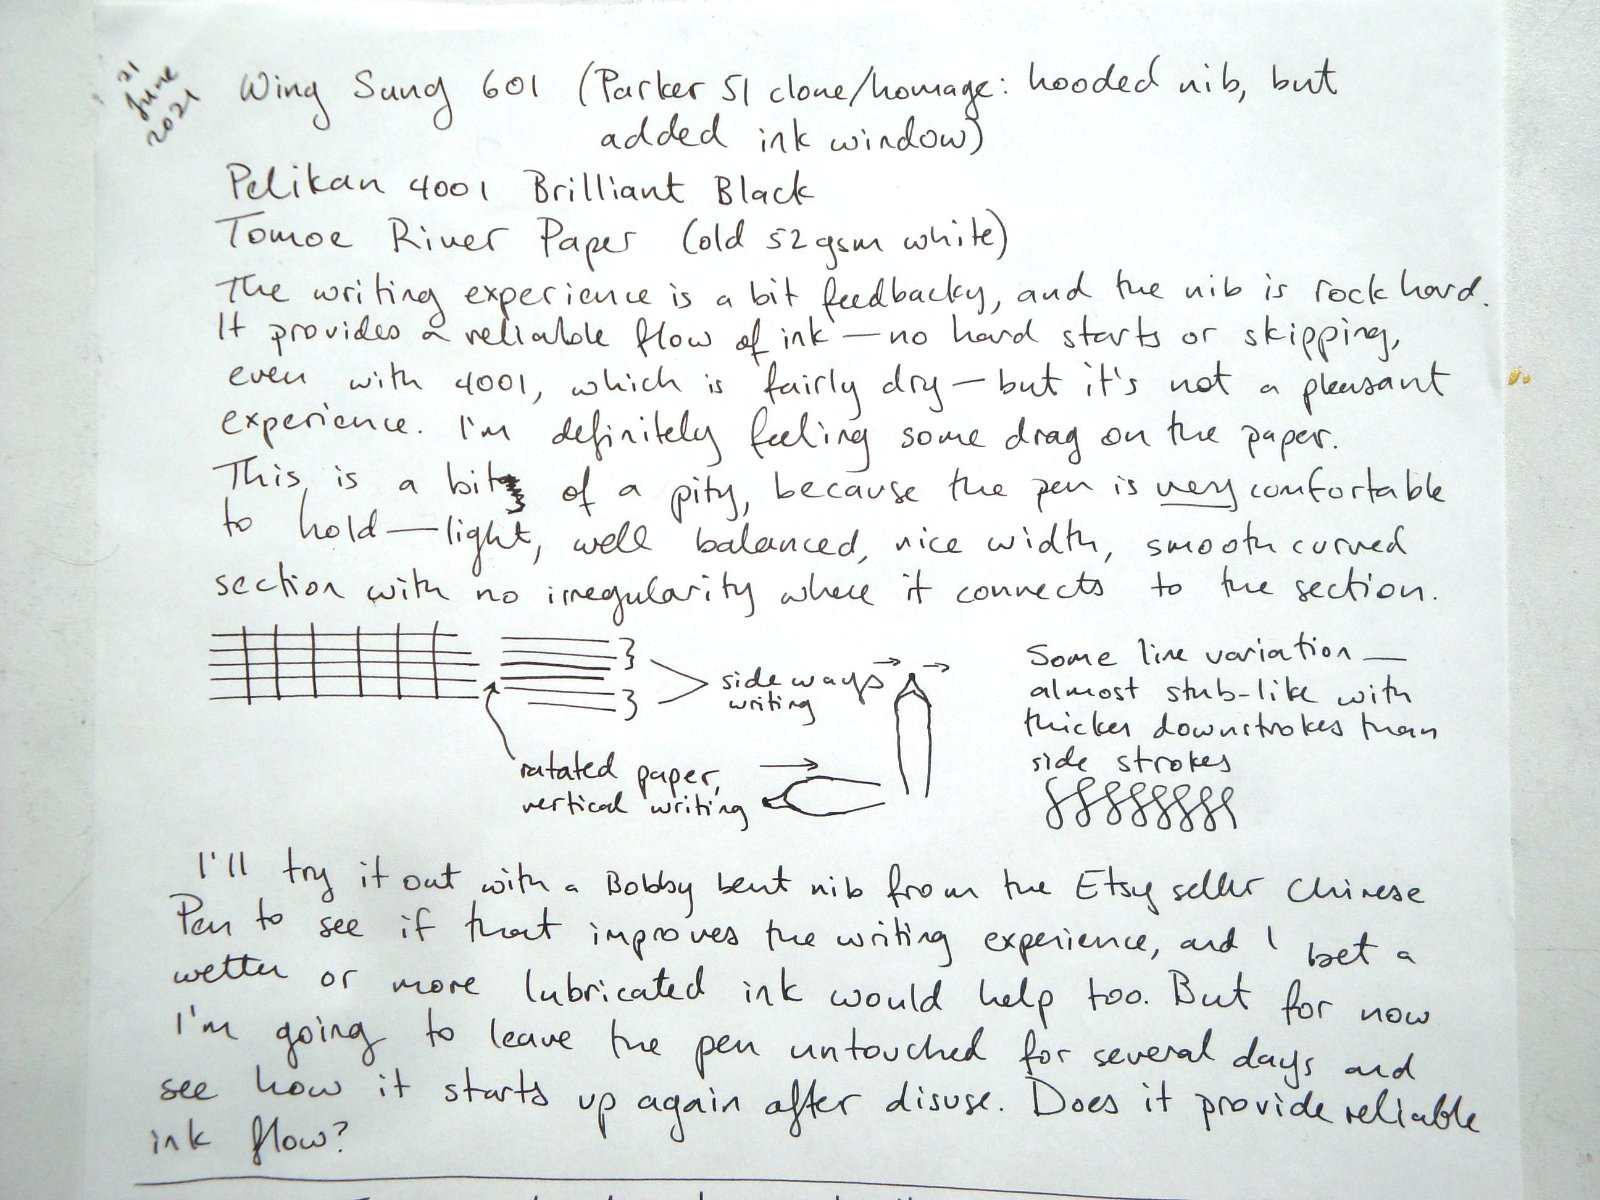 21
June
2021
Wing Sung 601 (Parker 51 clone/homage: hooded nib, but
added ink window)
Pelikan 4001 Brilliant Black
Tomoe River Paper (old 52gsm white)
The writing experience is a bit feedbacky, and the nib is rock hard.
It provides a reliable flow of ink—no hard starts or skipping,
even with 4001, which is fairly dry—but it's not a pleasant
experience. I'm definitely feeling some drag on the paper.
This is a bit of a pity, because the pen is very comfortable
to hold—light, well balanced, nice width, smooth curved
section with no irregularity where it connects to the section.
sideways
writing
rotated paper,
vertical writing
Some line variation—
almost stub-like with
thicker downstrokes than
side strokes
I'll try it out with a Bobby bent nib from the Etsy seller Chinese
Pen to see if that improves the writing experience, and I bet a
wetter or more lubricated ink would help too. But for now
I'm going to leave the pen untouched for several days and
see how it starts up again after disuse. Does it provide reliable
ink flow?